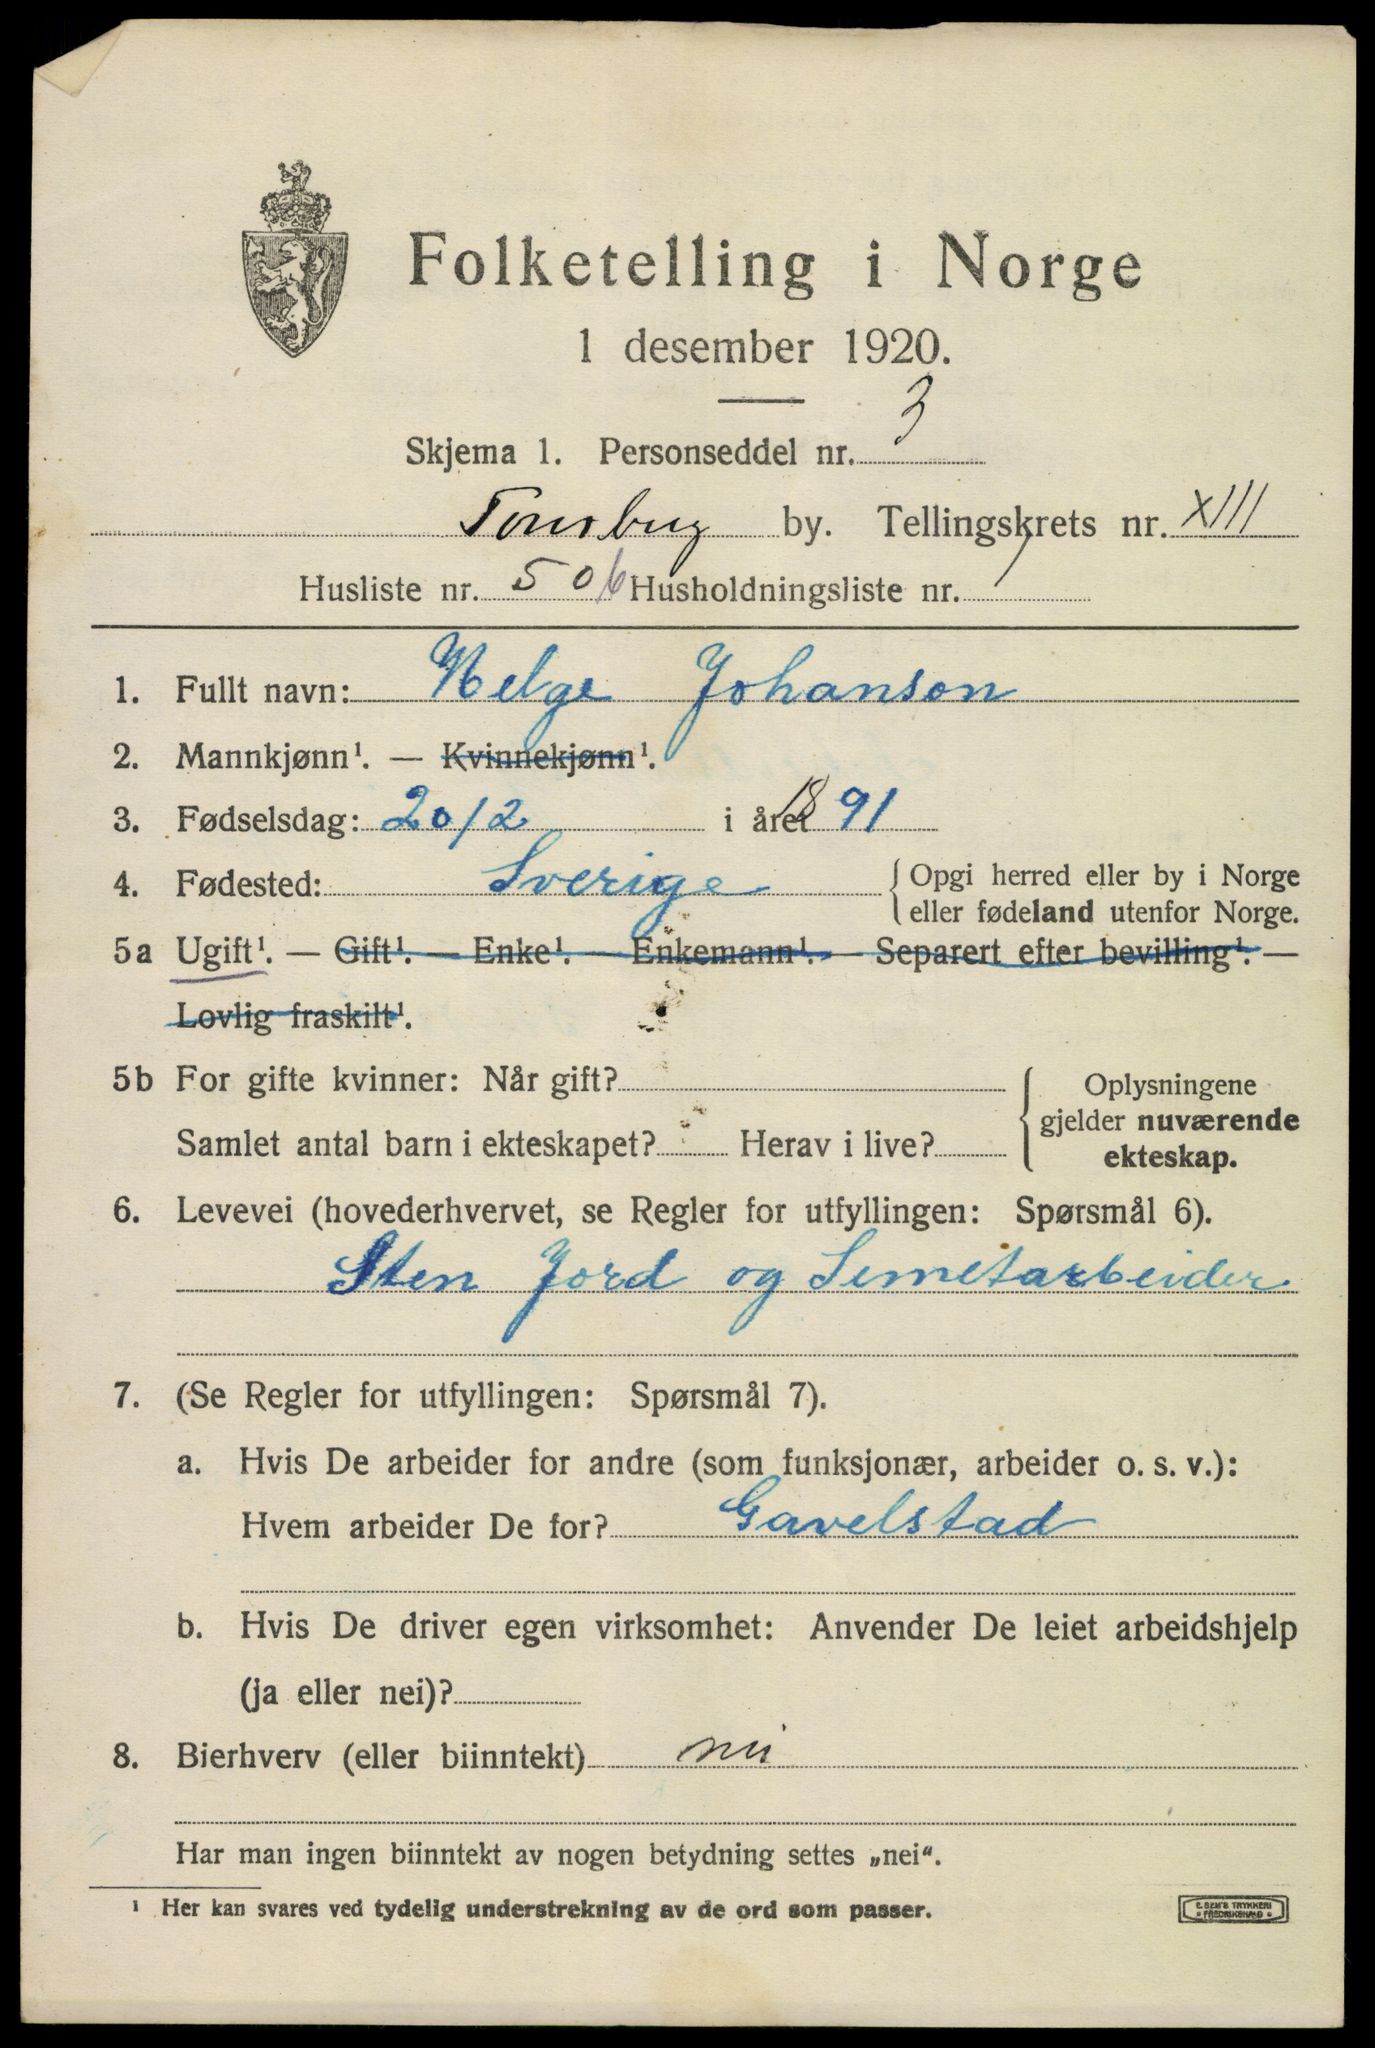 Folketelling i Norge
1 desember 1920.
Skjema 1. Personseddel nr. 3
Tønsberg by. Tellingskrets nr. XIII
Husliste nr. 506 Husholdningsliste nr. 1
1. Fullt navn: Helge Johanson
2. Mannkjønn¹. — Kvinnekjønn¹.
3. Fødselsdag: 20/2 i året 1891
4. Fødested: Sverige {Opgi herred eller by i Norge
eller fødeland utenfor Norge.
5a Ugift¹. — Gift¹. — Enke¹. — Enkemann¹. — Separert efter bevilling¹. —
Lovlig fraskilt¹.
5b For gifte kvinner: Når gift? {Oplysningene
gjelder nuværende
Samlet antal barn i ekteskapet? Herav i live? ekteskap.
6. Levevei (hovederhvervet, se Regler for utfyllingen: Spørsmål 6).
Sten Jord og Semetarbeider
7. (Se Regler for utfyllingen: Spørsmål 7).
a. Hvis De arbeider for andre (som funksjonær, arbeider o. s. v.):
Hvem arbeider De for? Gavelstad
b. Hvis De driver egen virksomhet: Anvender De leiet arbeidshjelp
(ja eller nei)?
8. Bierhverv (eller biinntekt) nei
Har man ingen biinntekt av nogen betydning settes „nei“.
¹ Her kan svares ved tydelig understrekning av de ord som passer.
E. SEM'S TRYKKERI
FREDRIKSHALD